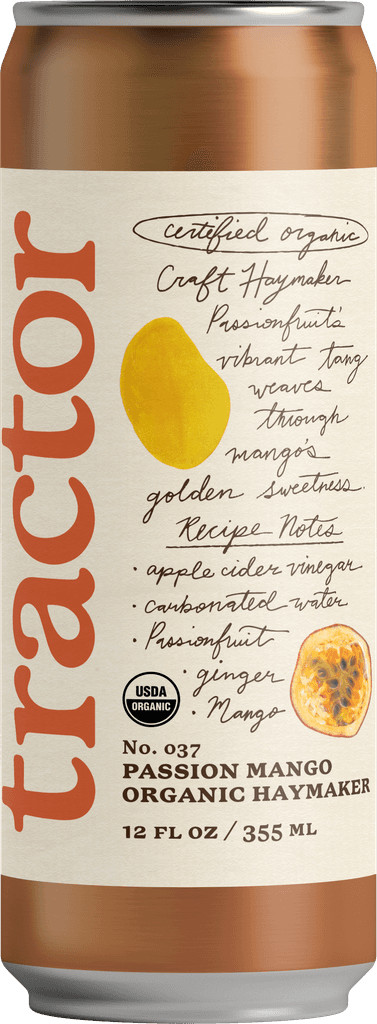 tractor
certified organic
Craft Haymaker
Passionfruit's
vibrant tang
weaves
through
mango's
golden sweetness.
Recipe Notes
· apple cider vinegar
· carbonated water
· Passionfruit
· ginger
· Mango
USDA
ORGANIC
No. 037
PASSION MANGO
ORGANIC HAYMAKER
12 FL OZ / 355 ML